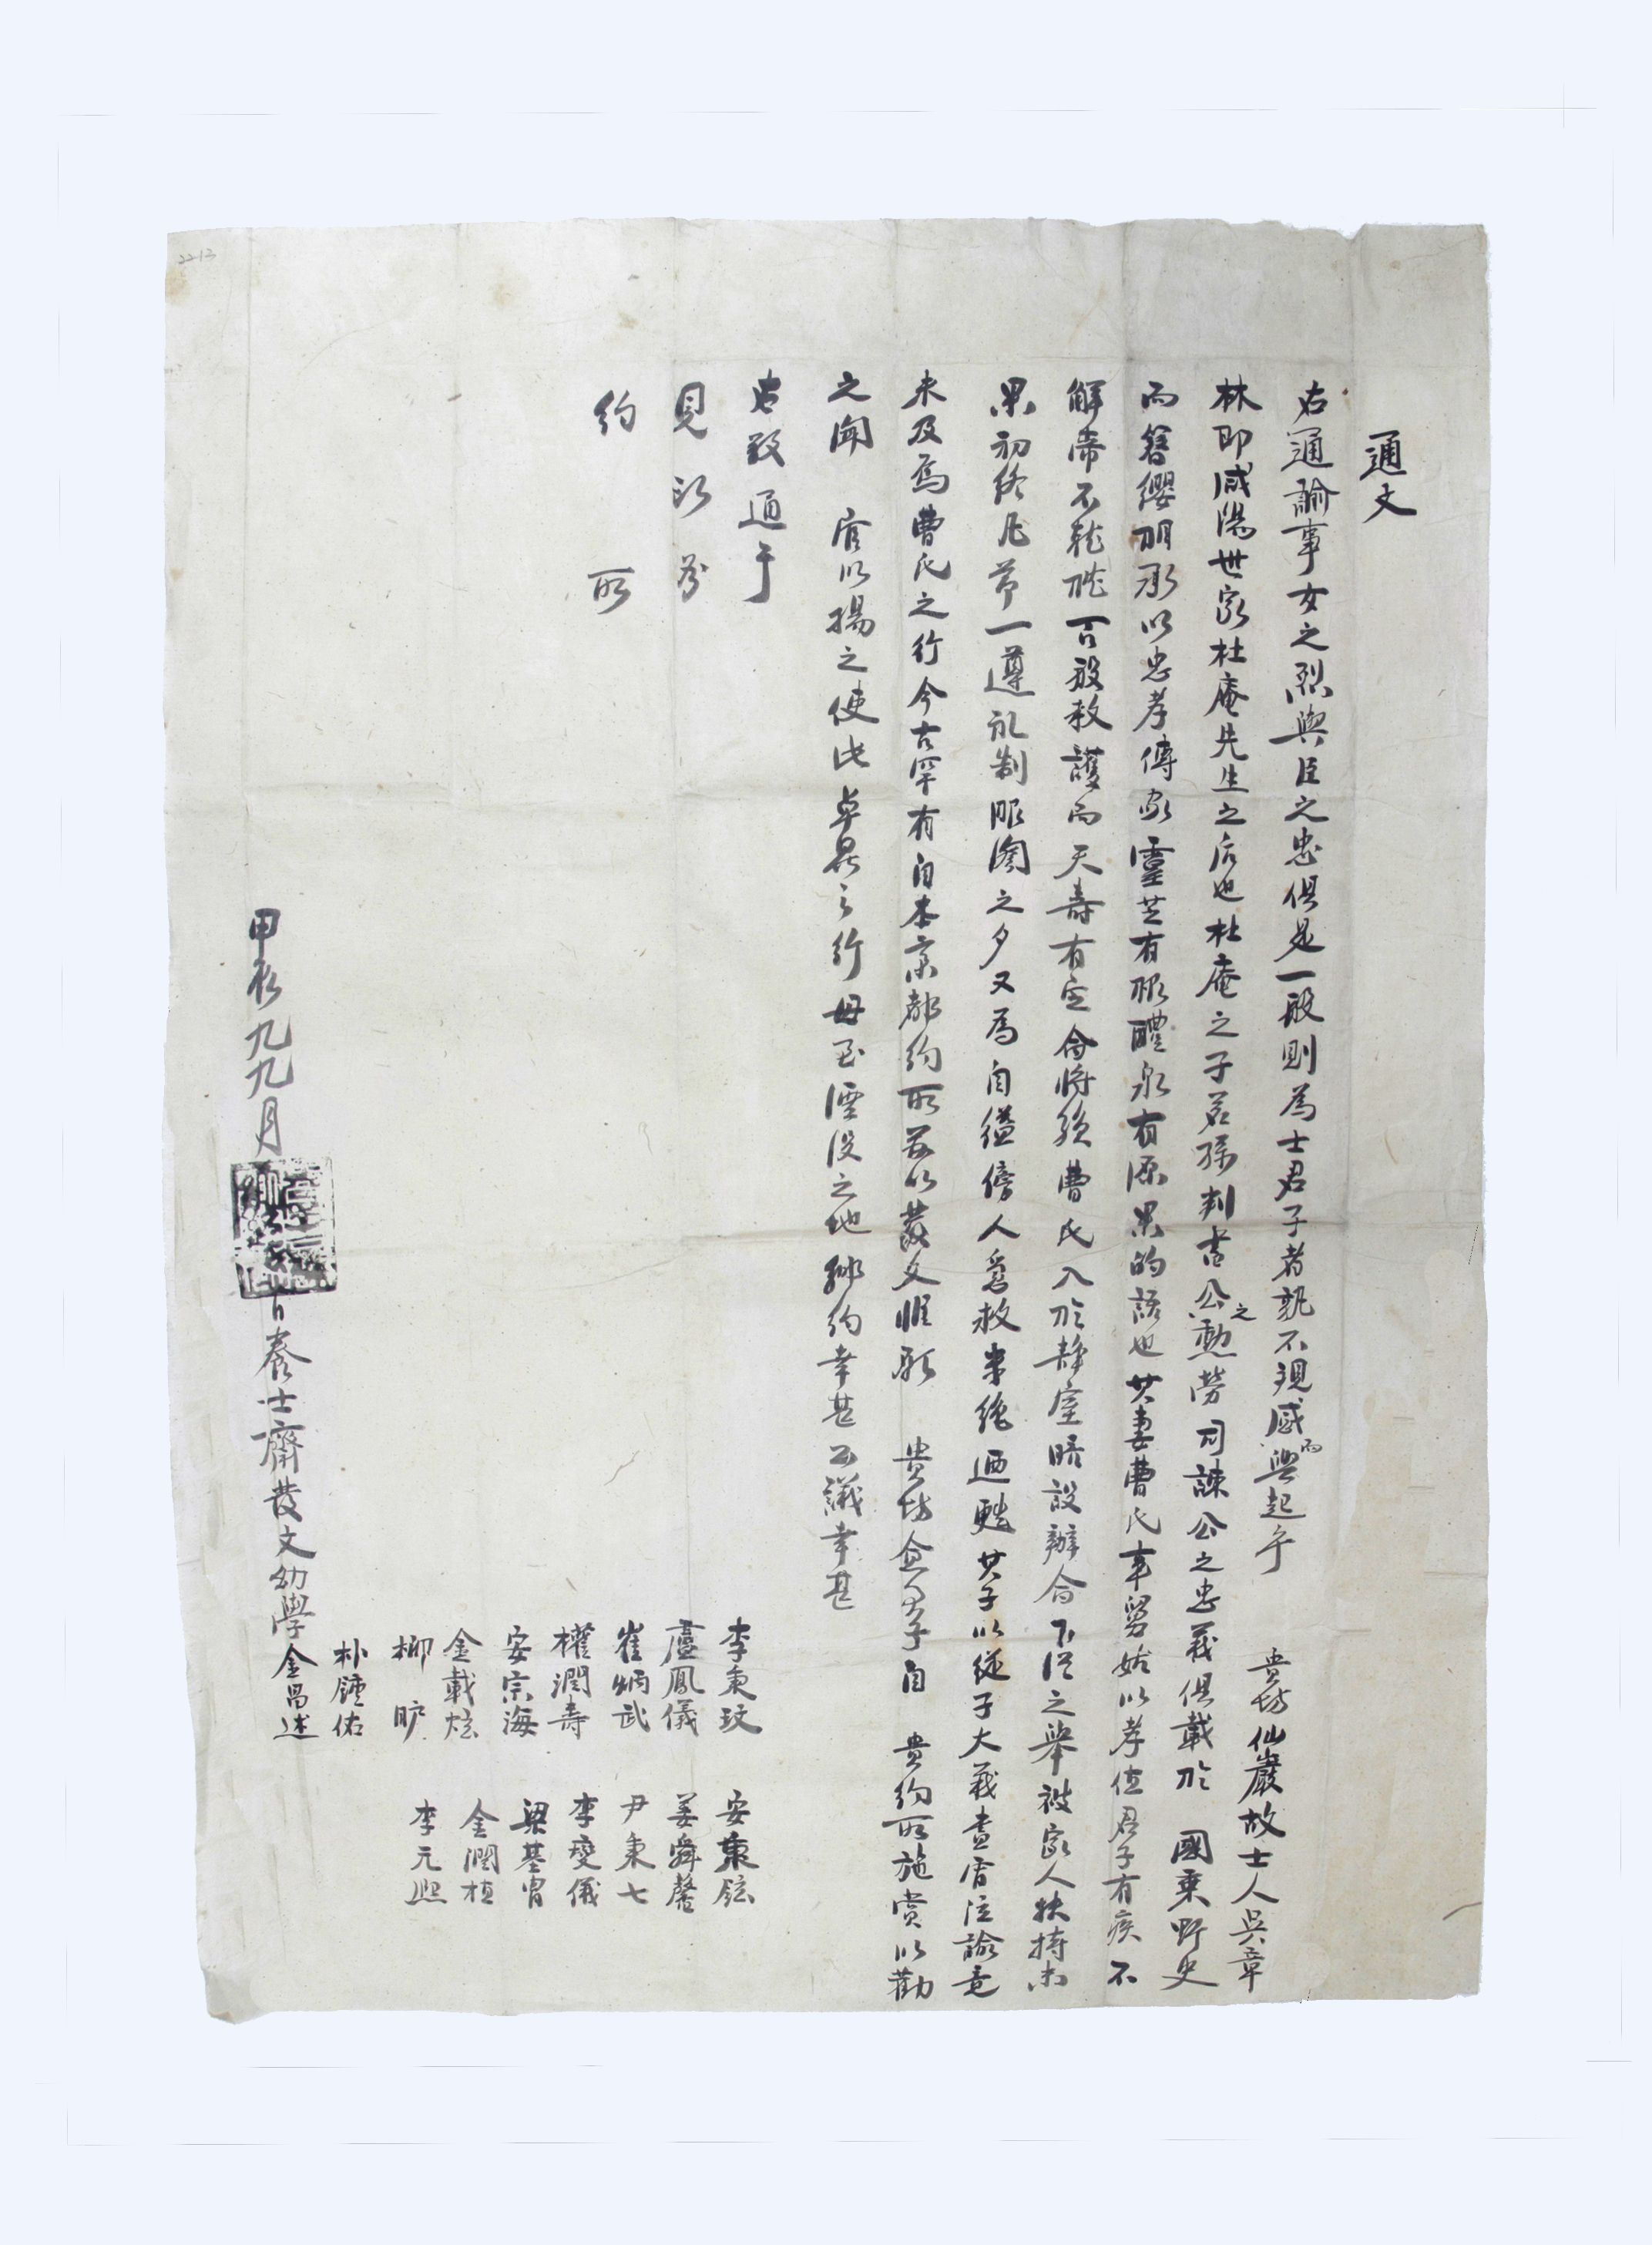 通文
右通諭事女之烈與臣之忠俱是一般則爲士君子者孰不現感而興起乎 貴坊仙巖故士人吳章
林卽咸陽世家杜庵先生之后也杜庵之子若孫判書公之勳勞司諫公之忠義俱載於 國乘野史
而簪纓朋承以忠孝傳家靈芝有根醴泉有源果的語也其妻曺氏事舅姑以孝位君子有疾不
解帶不離 百般救護而夭壽有定命將殞曺氏入於靜室暗設辦命下從之擧被家人扶持未
果初終凡節一遵礼制服闋之夕又爲自縊傍人爰救未絶廼甦其子以從子大義責 泣諭竟
未及焉曺氏之行今古罕有自本京都約所玆以發文惟願 貴坊僉君子自 貴約所施賞以勸
之聞 官以揚之使此卓異之行毋至湮沒之地 約幸甚公議幸甚
右敎通于
見 苏
約 所
李秉玟 安秉鉉
盧鳳儀 姜舜馨
崔炳武 尹秉七
權潤壽 李燮儀
安宗海 梁基胄
金載炫 金潤植
柳 昈 李元熙
朴鍾佑
甲辰九九月 日養士齋發文幼學金昌述
2212